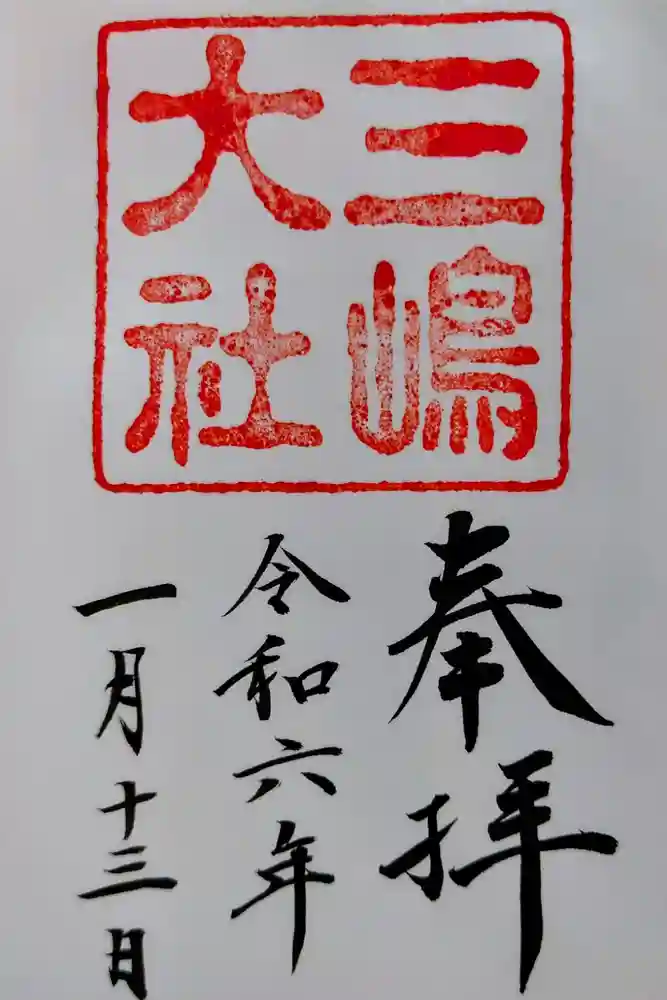 三嶋
大社
奉拝
令和六年
一月十三日